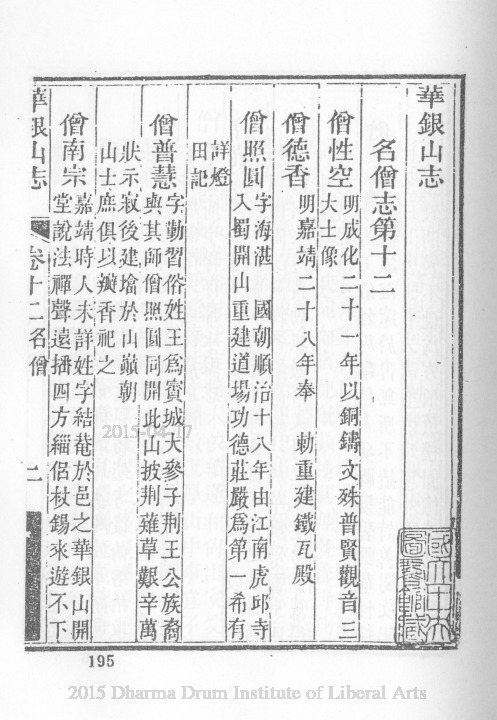 華銀山志
名僧志第十二
僧性空 明成化二十一年以銅鑄文殊普賢觀音三
大士像
僧德香 明嘉靖二十八年奉 勅重建鐵瓦殿
僧照圓 字海湛 國朝順治十八年由江南虎邱寺
入蜀開山重建道場功德莊嚴爲第一希有
詳燈
田記
僧普慧 字勤習俗姓王爲賨城大參子荆王公族裔
與其師僧照圓同開此山披荆薙草艱辛萬
狀示寂後建墖於山巔朝
山士庶俱以瓣香祀之
僧南宗 嘉靖時人未詳姓字結菴於邑之華銀山開
堂說法禪聲遠播四方緇侶杖錫來遊不下
華銀山志 卷十二名僧 二
195
2015-04-17
2015 Dharma Drum Institute of Liberal Arts